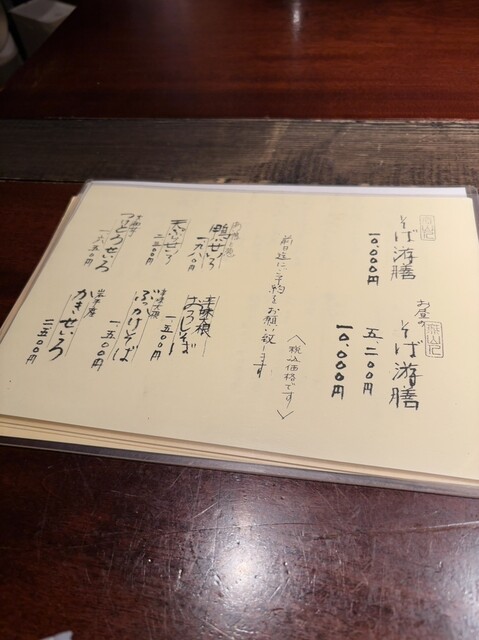 そば游膳
一〇、〇〇〇円
お昼の
そば游膳
五二〇〇円
一〇、〇〇〇円
前日迄に予約をお願い致します
〈税込価格です〉
鴨せいろ
一九八〇円
辛味大根
おろしそば
一五〇〇円
天ぷらせいろ
二二五〇円
辛味大根
ぶっかけそば
一五〇〇円
つけとろせいろ
一六五〇円
かきせいろ
二五〇〇円